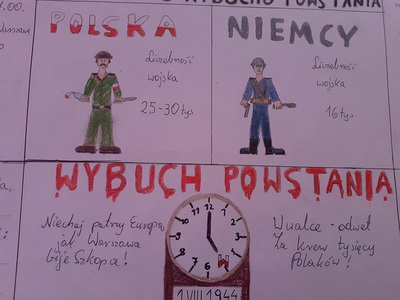 1.00.
WYBUCHU POWSTANIA
POLSKA
NIEMCY
Liczebność
wojska
25-30 tys.
Liczebność
wojska
16 tys.
WYBUCH POWSTANIA
Niechaj patrzy Europa,
jak Warszawa
bije Szkopa!
12 1 2 3 4 5 6 7 8 9 10 11
W
1 VIII 1944
W walce - odwet
za krew tysięcy
Polaków!